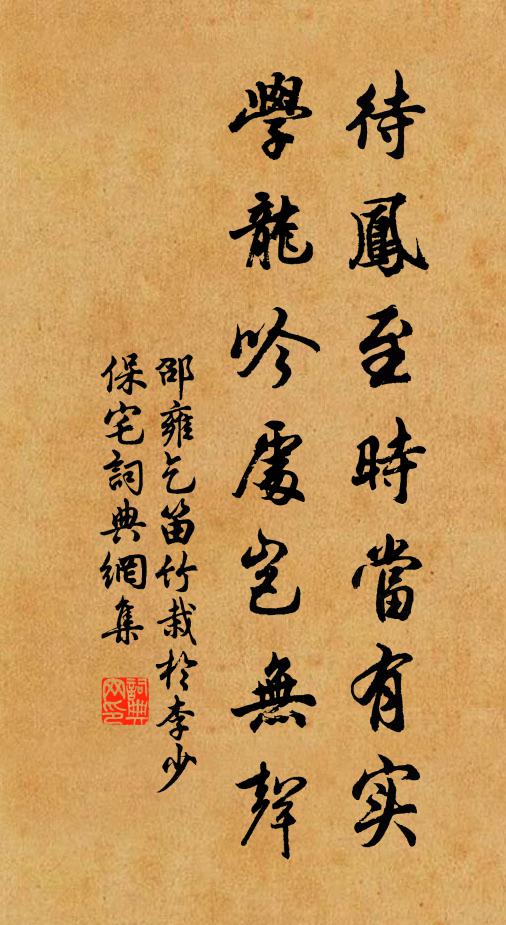 待鳳至時當有实
學龍吟處豈無聲
邵雍乞笛竹栽於李少
保宅詞典網集
詞典網印